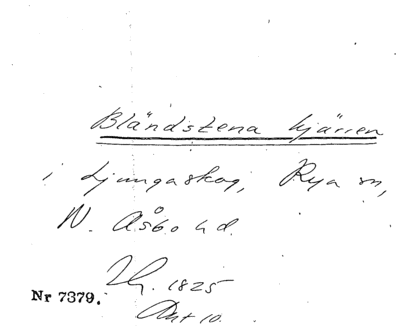 Bländstena kjärren
i Ljungaskog, Rya sn,
N. Åsbo hd.
1825
Nr 7379.
Akt 10.